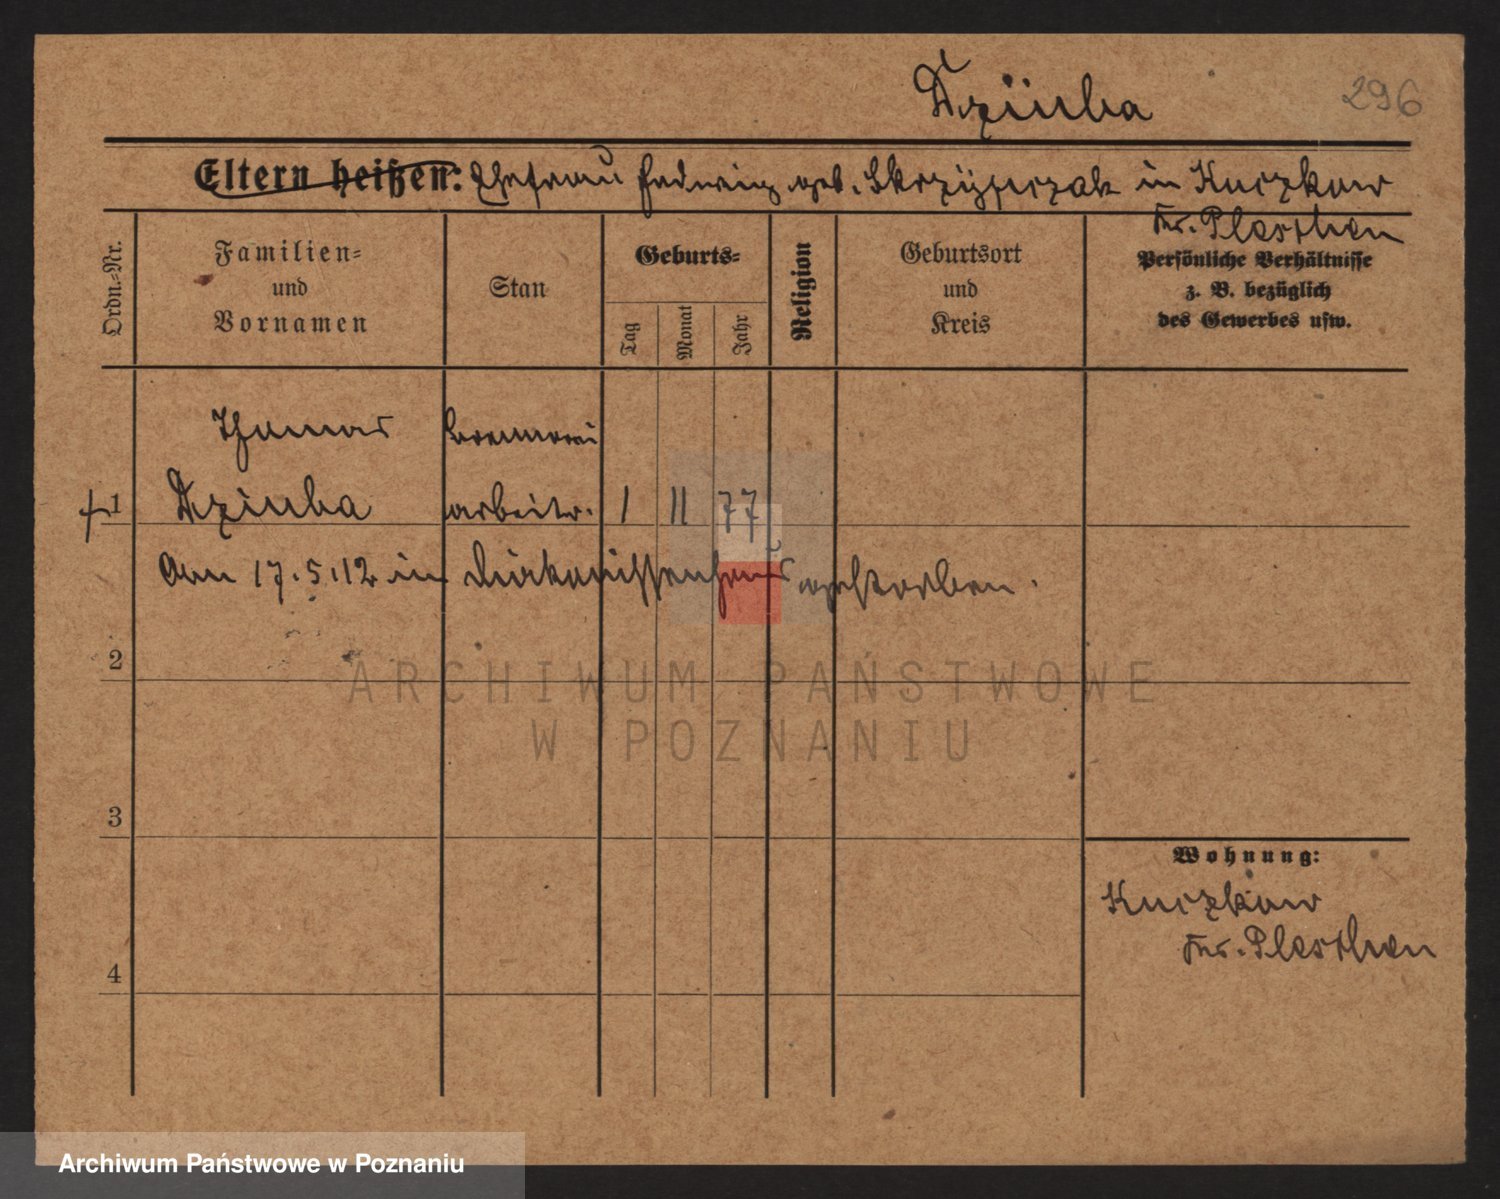 Dziuba
296
Eltern heißen: Ehefrau Hedwig geb. Skrzypczak in Kuczkow
Kr. Pleschen
Ordn.-Nr.
Familien-
und
Vornamen
Stan
Geburts-
Tag
Monat
Jahr
Religion
Geburtsort
und
Kreis
Persönliche Verhältnisse
z. B. bezüglich
des Gewerbes usw.
Thomas Brennerei
1 Dziuba arbeiter. 1 11 77
Am 17.5.12 in Diakonissenhaus gestorben.
2
ARCHIWUM PAŃSTWOWE
W POZNANIU
3
Wohnung:
Kuczkow
Kr. Pleschen
4
Archiwum Państwowe w Poznaniu